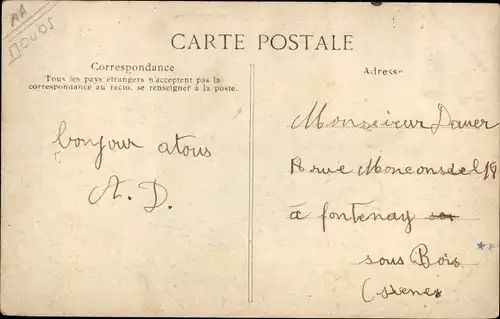 AA
DOUBS
CARTE POSTALE
Correspondance
Tous les pays étrangers n'acceptent pas la
correspondance au recto. se renseigner à la poste.
Adresse
bonjour atous
A. D.
Monsieur Dauer
rue Monconseil 19
à fontenay
sous Bois